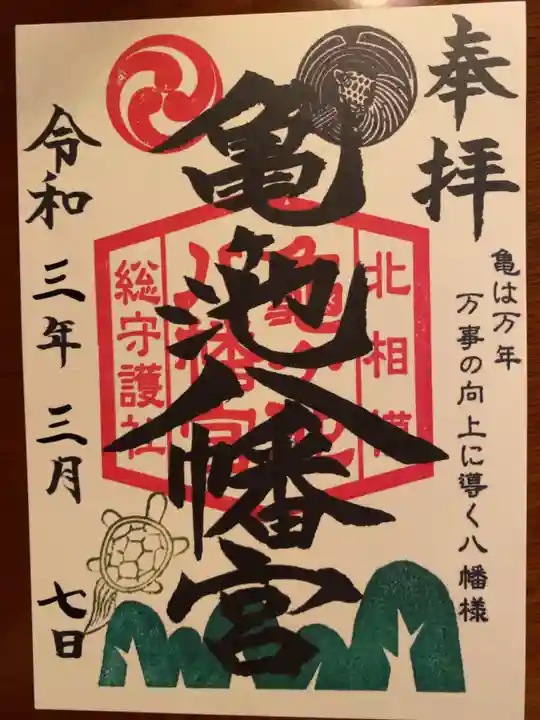 奉拝
亀は万年
万事の向上に導く八幡様
北相模
総守護社
亀池八幡宮
令和三年三月七日